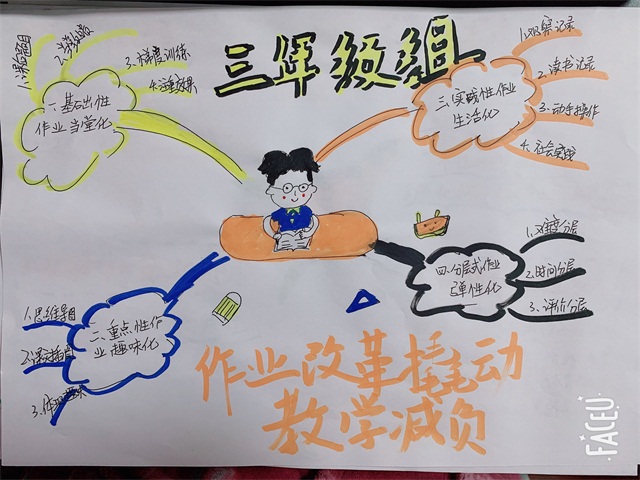 三年级组
一.基础性
作业当堂化
3.梯度训练
4.注重效果
三.实践性作业
生活化
1.观察记录
2.读书记录
3.动手操作
4.社会实践
二.重点性作
业趣味化
1.思维导图
四.分层式作业
弹性化
1.难度分层
2.时间分层
3.评价分层
作业改革撬动
教学减负
FACEU